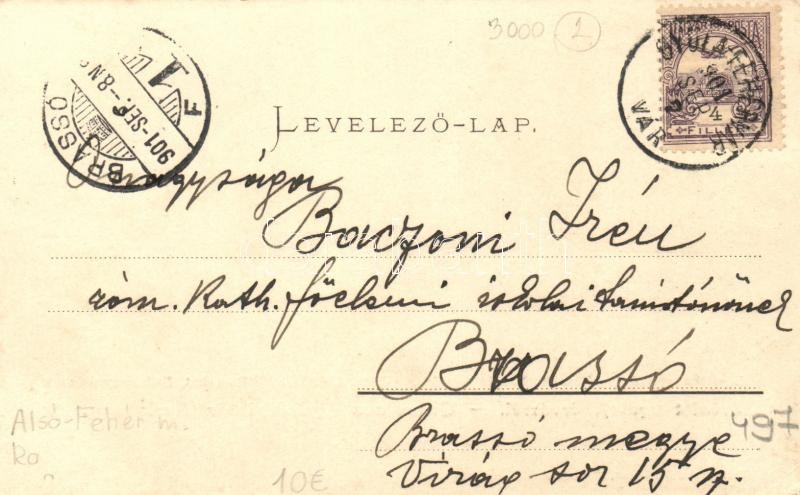 3000 1
MAGYAR KIR. POSTA
GYULAFEHÉRVÁR
901 SEP
4
VÁR
FILLÉR
BRASSÓ
901-SEP.-8N
F
LEVELEZŐ-LAP.
Őnagysága
Baczoni Irén
róm. Kath. főelemi iskolai tanítónőnek
Brassó
Brassó megye
Virág sor 15 sz.
Alsó-Fehér m.
Ro
10€
497